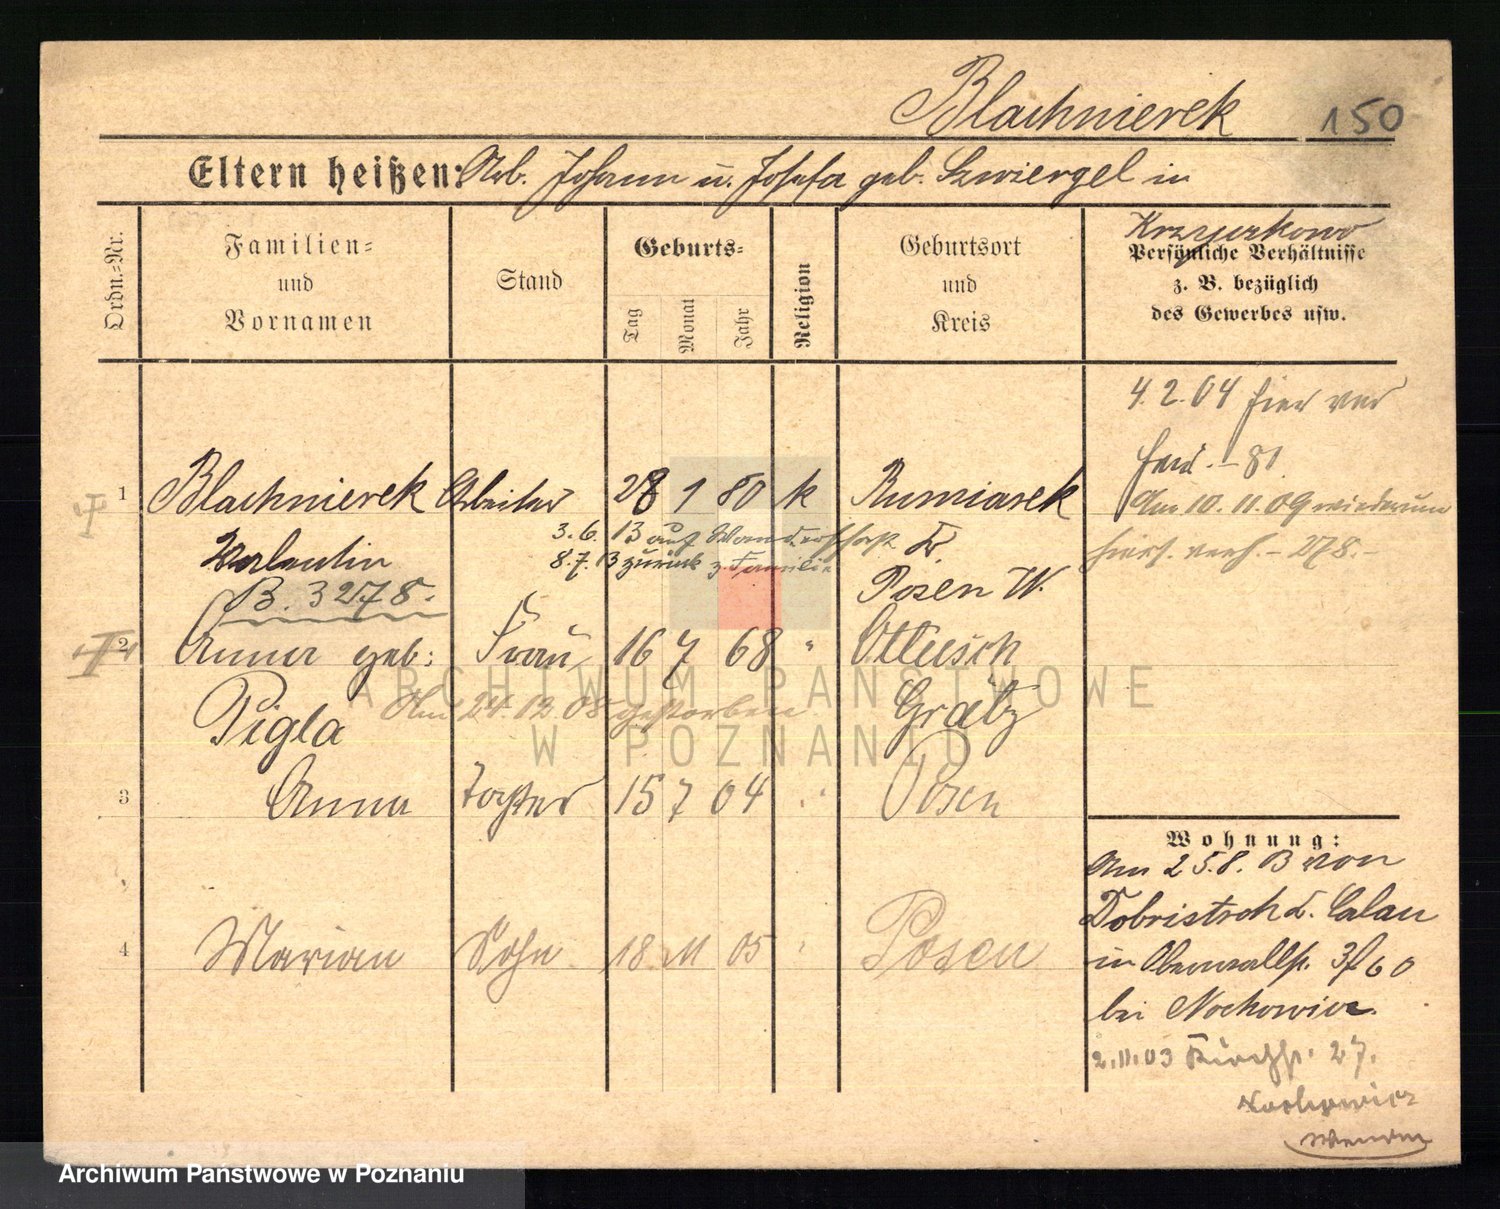 Blachnierek 150
Eltern heißen: Arb. Johann u. Josefa geb. Szwiergel in
Krzyzkowo
Ordn.=Nr.
Familien=
und
Vornamen
Stand
Geburts=
Tag
Monat
Jahr
Religion
Geburtsort
und
Kreis
Persönliche Verhältnisse
z. B. bezüglich
des Gewerbes usw.
4.2.04 hier ver
heir. – 81
Am 10.11.09 wiederum
hiers. verh. – 278. –
1 Blachnierek Arbeiter 28 1 80 k Rumianek
3.6.13 auf Wanderschaft
Valentin
8.7.13 zurück z. Familie
Posen W.
B. 3278.
2 Anna geb: Frau 16 7 68 " Ottusch
Pigla Am 24.12.08 gestorben Grätz
3 Anna Tochter 15 7 04 " Posen
4 Marian Sohn 18 11 05 " Posen
Wohnung:
Am 25.8.13 von
Dobristroh K. Calau
in
bei Nochowicz
2.11.03 27.
ARCHIWUM PAŃSTWOWE
W POZNANIU
Archiwum Państwowe w Poznaniu